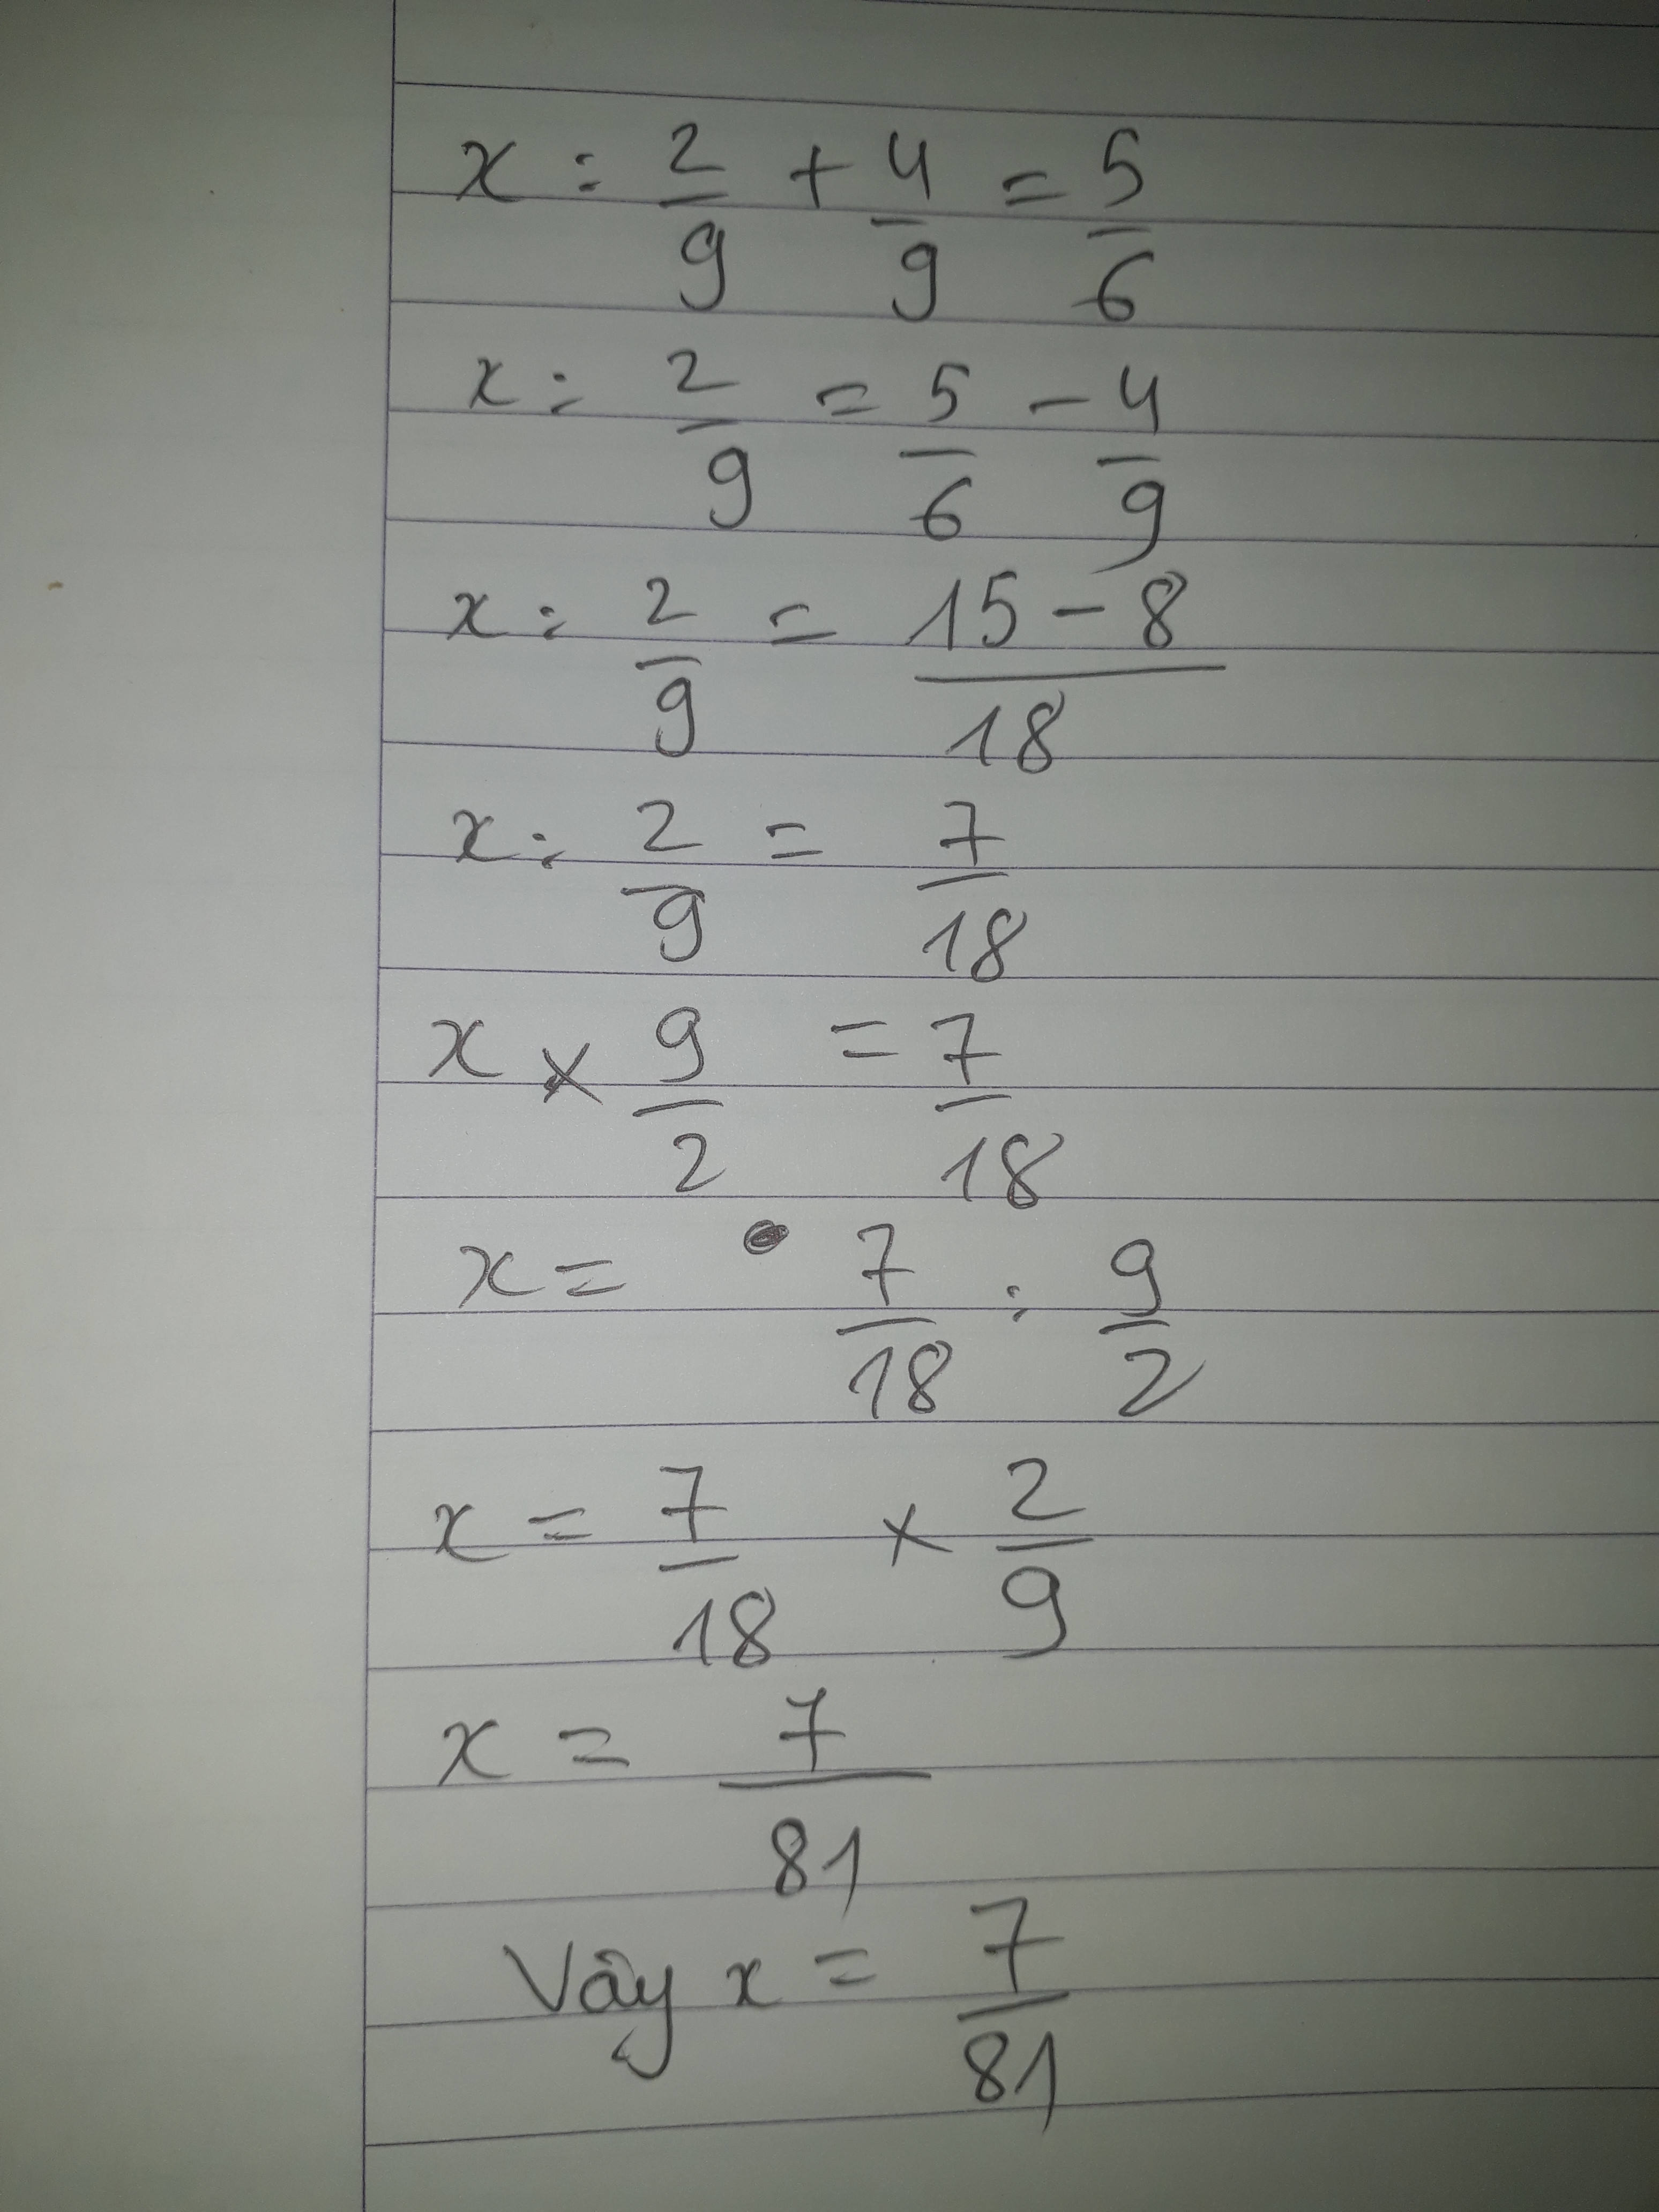 x : 2/9 + 4/9 = 5/6
x : 2/9 = 5/6 - 4/9
x : 2/9 = (15 - 8)/18
x : 2/9 = 7/18
x × 9/2 = 7/18
x = 7/18 : 9/2
x = 7/18 × 2/9
x = 7/81
Vậy x = 7/81